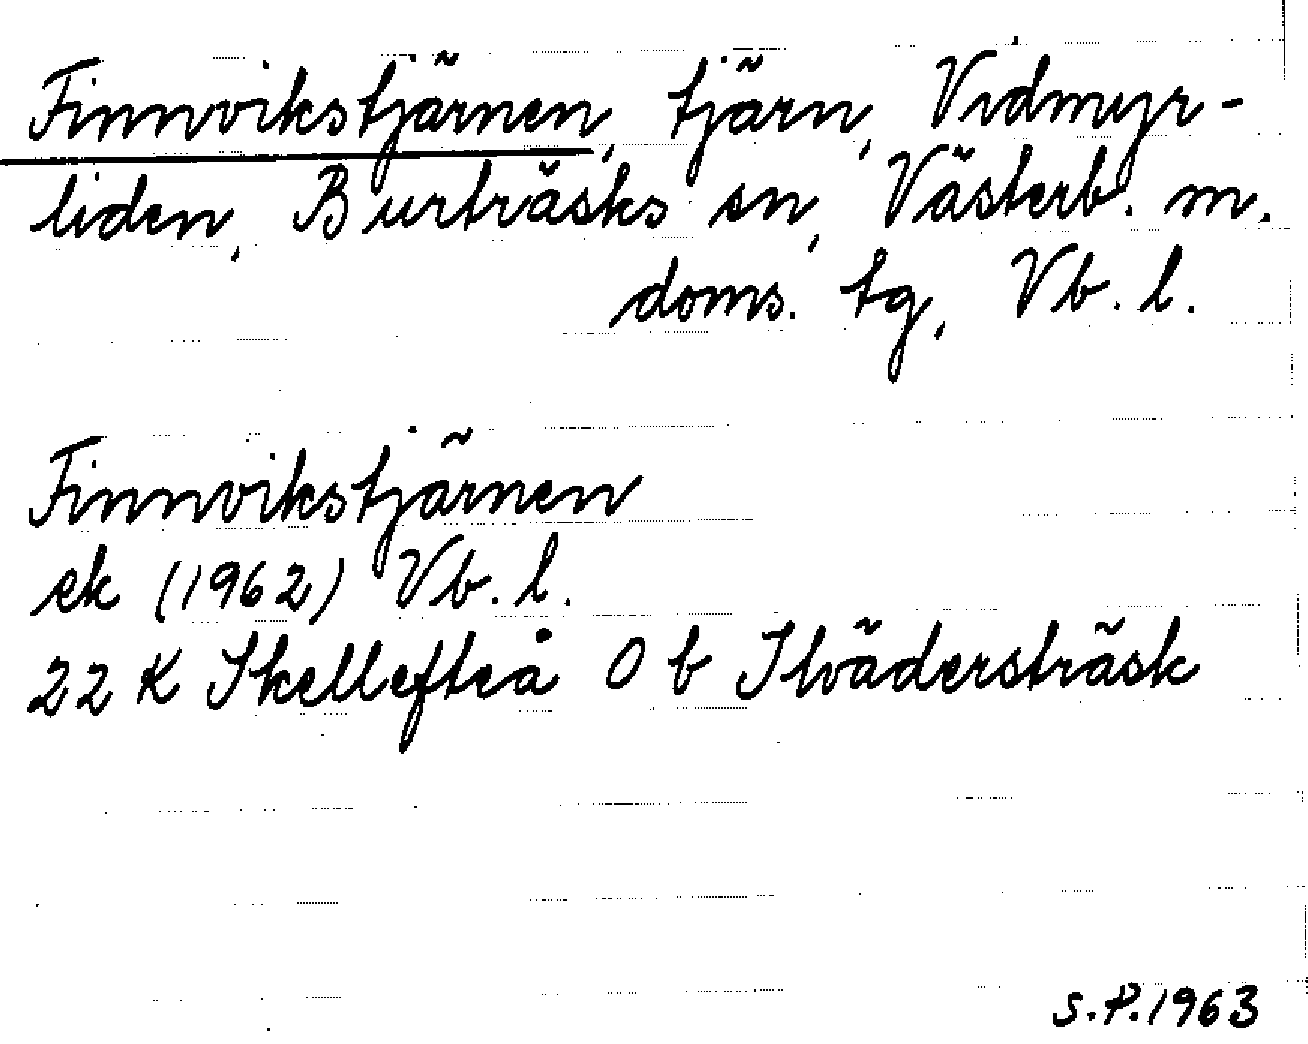 Finnvikstjärnen, tjärn, Vidmyr-
liden, Burträsks sn, Västerb. m.
doms. tg, Vb. l.
Finnvikstjärnen
ek (1962) Vb. l.
22 K Skellefteå 0 b Ilvädersträsk
S.P. 1963